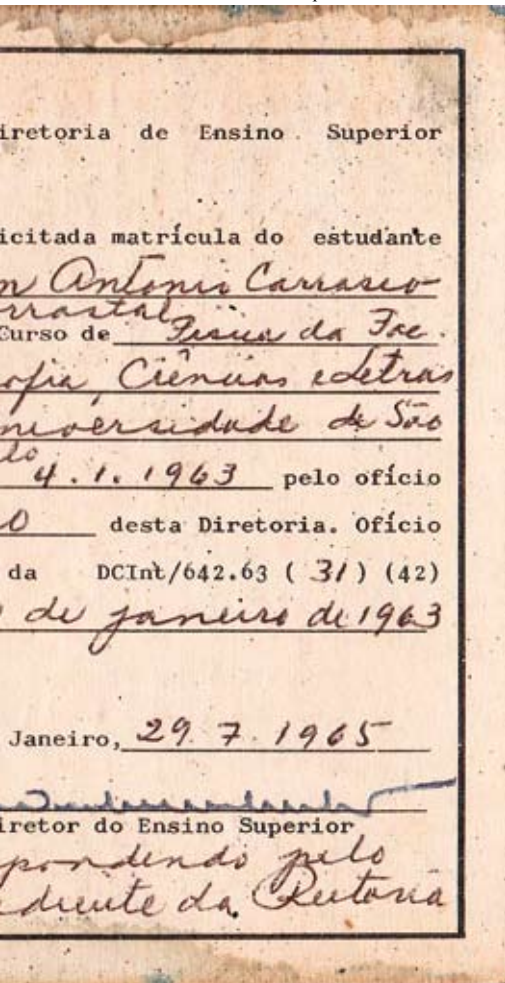 iretoria de Ensino Superior
icitada matrícula do estudante
n Antonio Carrasco
rrastal
Curso de Fisica da Fac.
ofia, Ciências e Letras
niversidade de São
lo 4.1.1963 pelo ofício
0 desta Diretoria. Ofício
da DCInt/642.63 (31) (42)
de janeiro de 1963
Janeiro, 29.7.1965
iretor do Ensino Superior
pondendo pelo
ediente da Reitoria